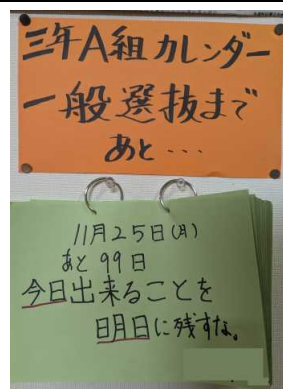 三年A組カレンダー
一般選抜まで
あと・・・
11月25日(月)
あと99日
今日出来ることを
明日に残すな。